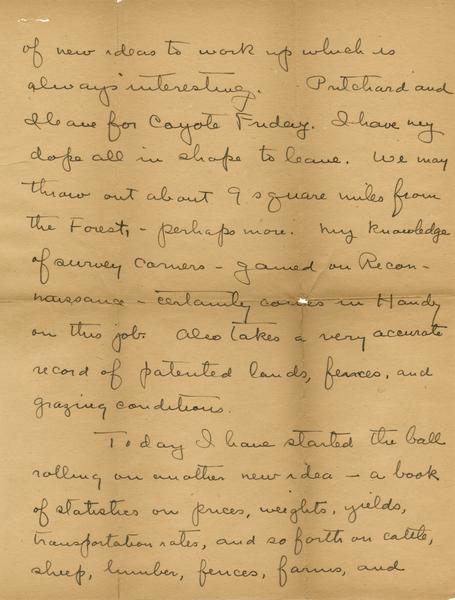 of new ideas to work up which is
always interesting. Pritchard and
I leave for Coyote Friday. I have my
dope all in shape to leave. We may
throw out about 9 square miles from
the Forest, - perhaps more. My knowledge
of survey corners - gained on Recon-
naissance - certainly comes in Handy
on this job. Also takes a very accurate
record of patented lands, fences, and
grazing conditions.
Today I have started the ball
rolling on another new idea - a book
of statistics on prices, weights, yields,
transportation rates, and so forth on cattle,
sheep, lumber, fences, farms, and